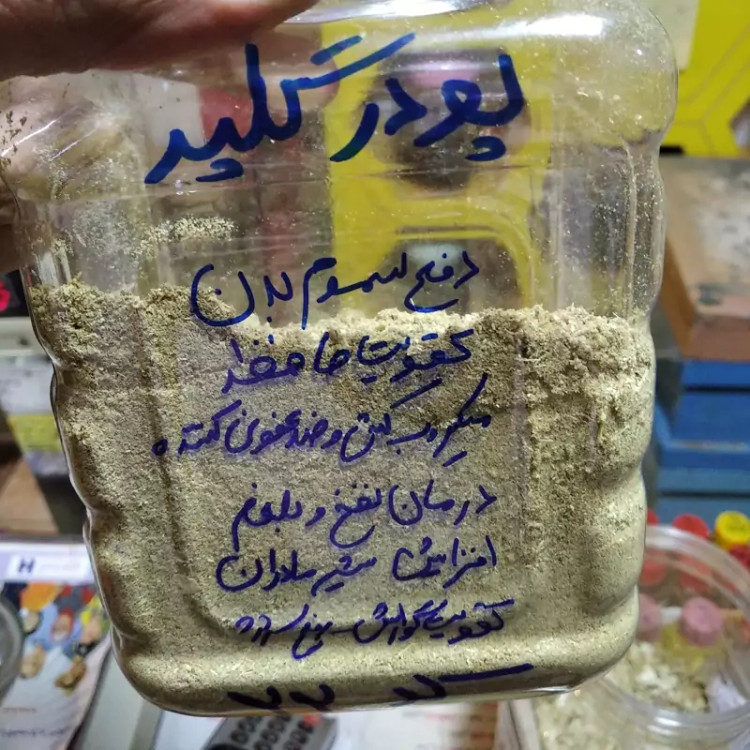 پودر گلپر
دفع سموم بدن
تقویت حافظه
میکروب کش و ضد عفونی کننده
درمان نفخ و بلغم
افزایش شیر مادران
تقویت گوارش
H